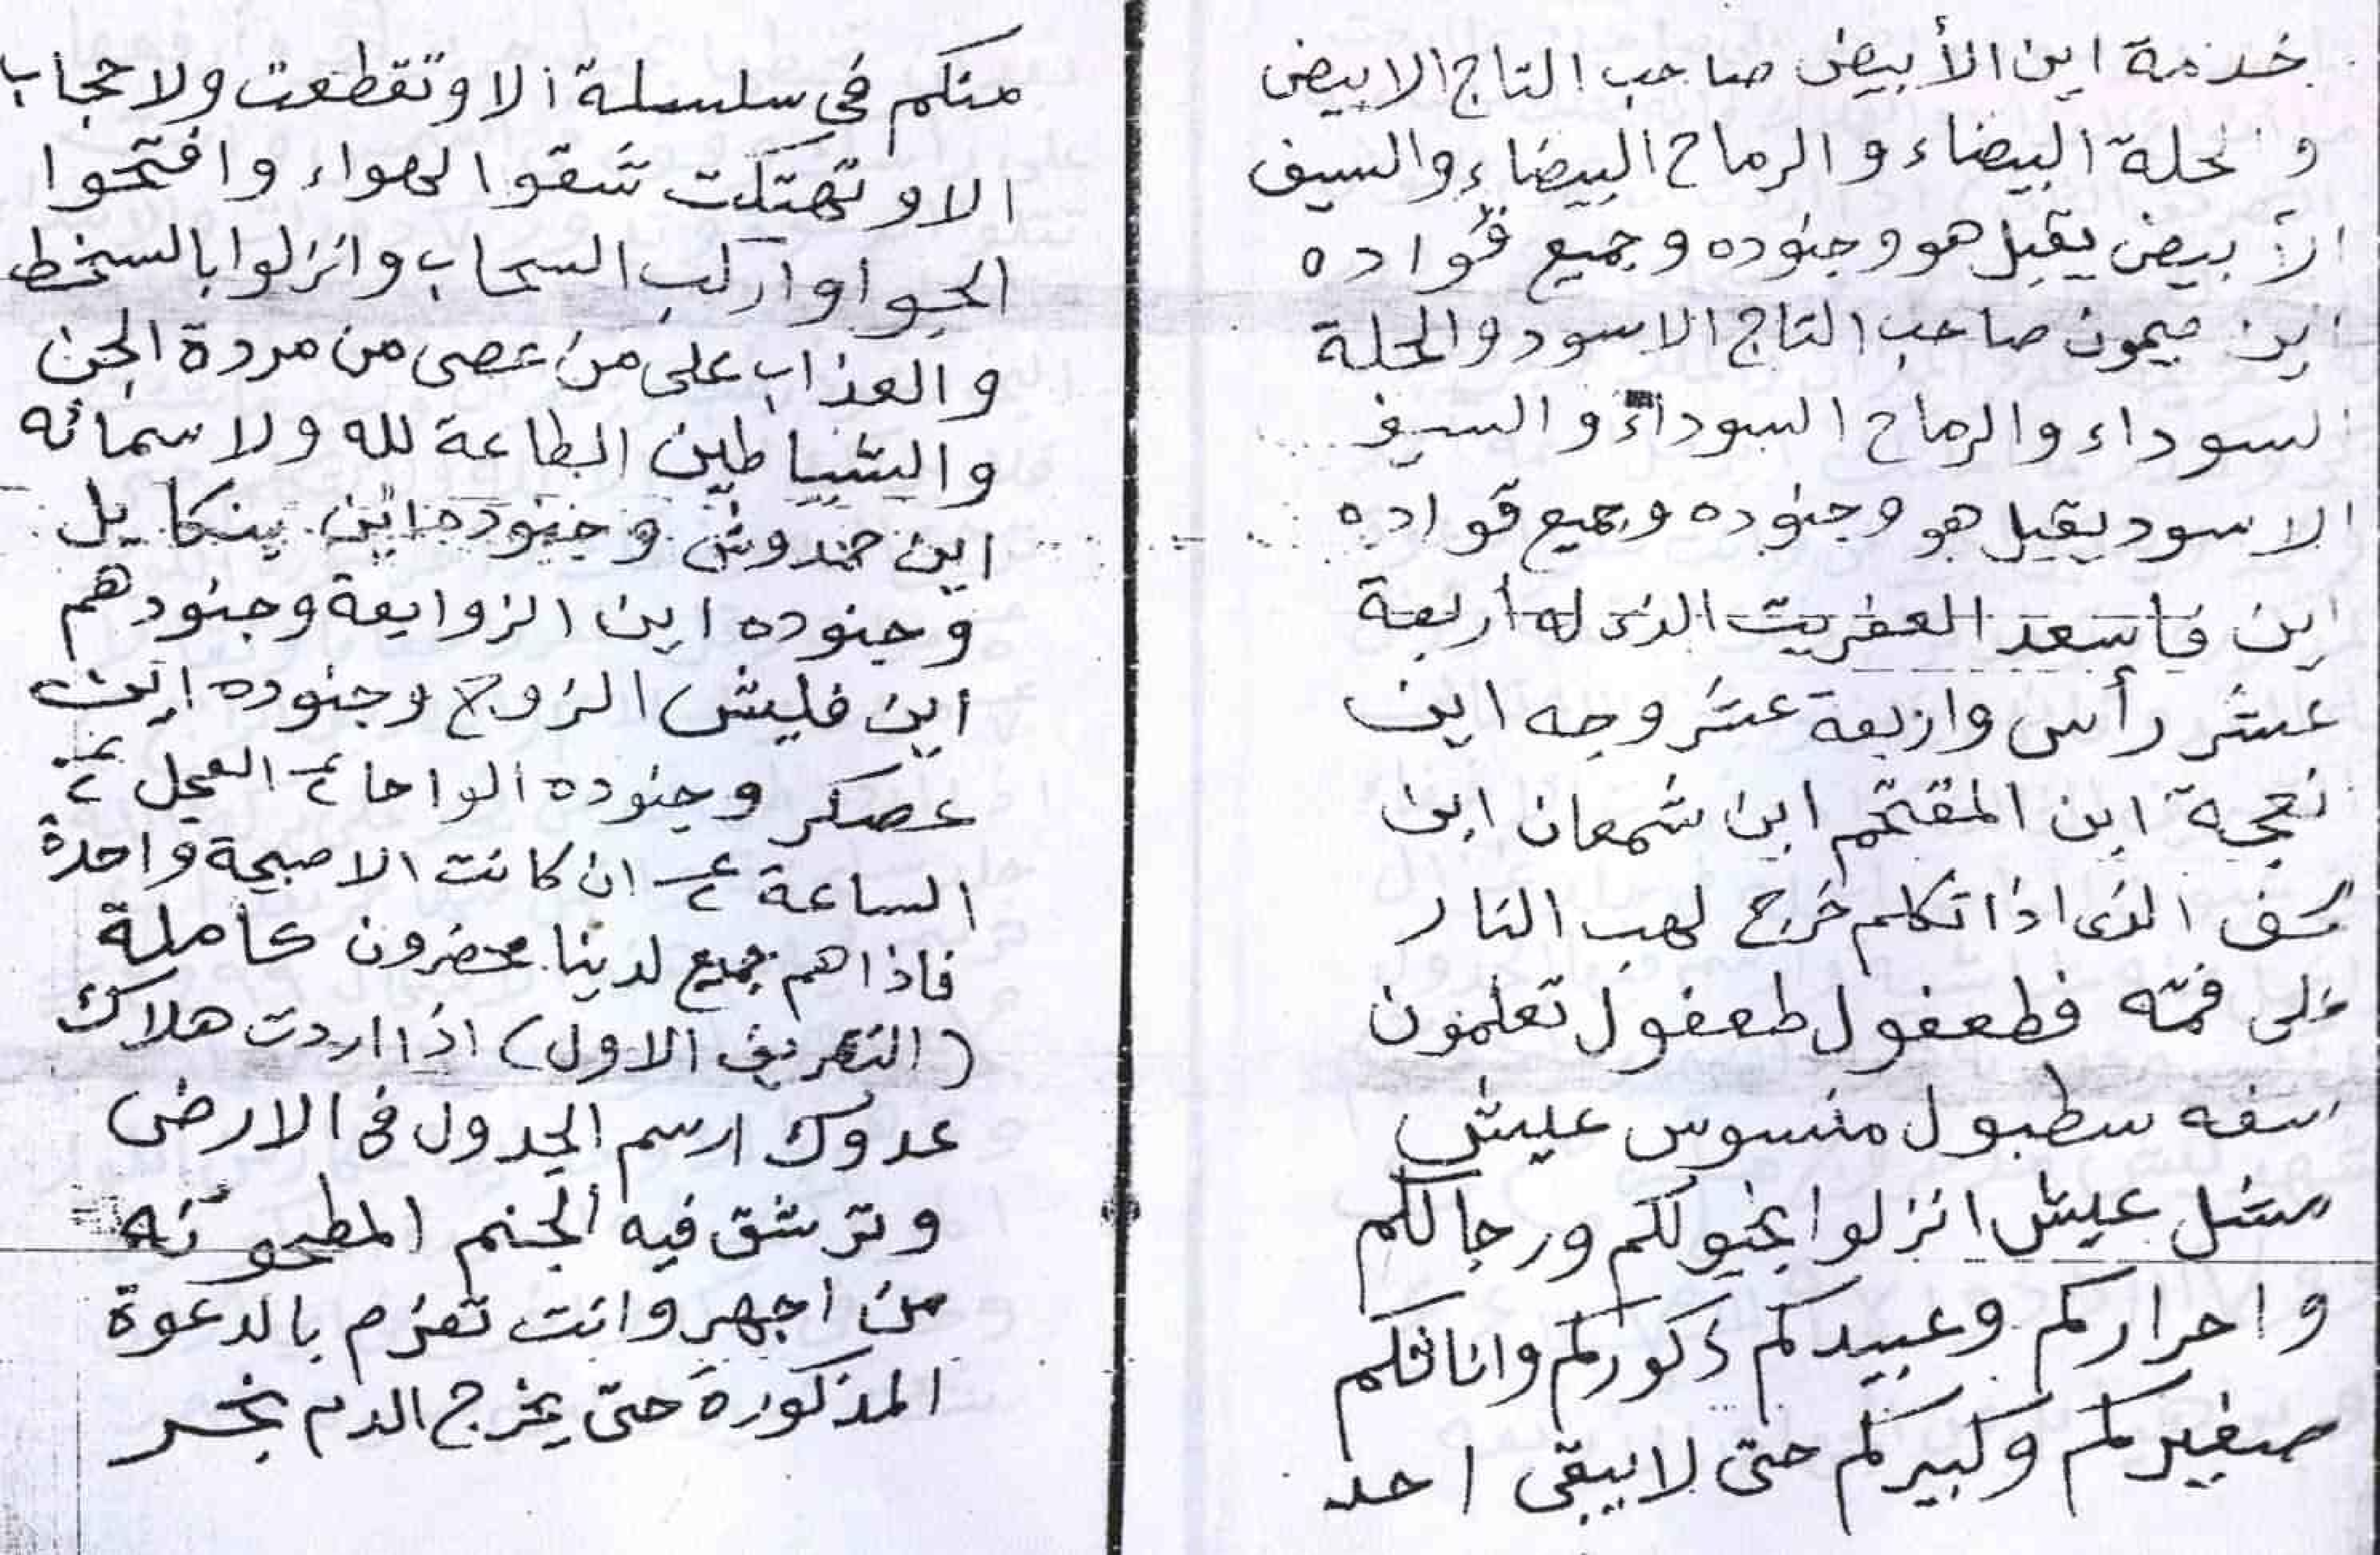 خدمة اين الأبيض صاحب التاج الابيض
والحلة البيضاء والرماح البيضاء والسيف
الأبيض يقبل هو وجنوده وجميع قواده
اين ميمون صاحب التاج الاسود والحلة
السوداء والرماح السوداء والسيف
الاسود يقبل هو وجنوده وجميع قواده
اين العفريت الذى له أربعة
عشر رأس واربعة عشر وجه اين
اين شمعان اين
الذى اذا تكلم خرج لهب النار
فمه فطعفول طعفول تعلمون
سطبول منسوس عليش
عليش انزلوا بخيولكم ورجالكم
واحراركم وعبيدكم ذكوركم واناثكم
صغيركم وكبيركم حتى لا يبقى احد
منكم فى سلسلة الا وتقطعت ولا حجاب
الا وتهتكت شقوا الهواء وافتحوا
السحاب وانزلوا بالسخط
والعذاب على من عصى من مردة الجن
والشياطين الطاعة لله ولاسمائه
اين وجنوده اين ينكايل
وجنوده اين الزوابعة وجنودهم
اين فليش الزوج وجنوده اين
عصكر وجنوده الواحا ٢ العجل ٢
الساعة ٢ ان كانت الا صيحة واحدة
فاذا هم جميع لدينا محضرون كاملة
(التصريف الاول) اذا اردت هلاك
عدوك ارسم الجدول فى الارض
وترشق فيه
من وانت تعزم بالدعوة
المذكورة حتى يخرج الدم بخر